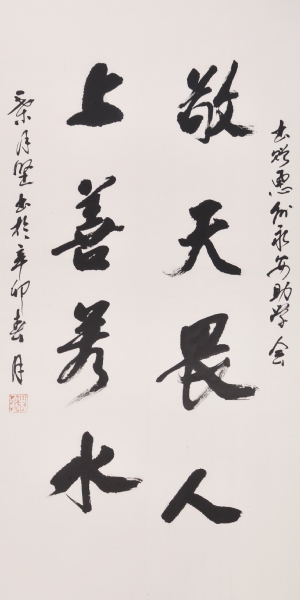 书赠惠州永安助学会
敬天畏人
上善若水
月坚书於辛卯春月